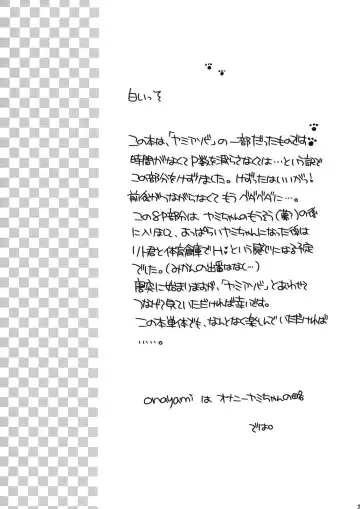 白いっそ
この本は、「ヤミアソビ」の一部だったものです
時間がなくてP数を減らさなくては…という訳で
この部分をけずりました。けずったはいいがっ!
前後がつながらなくてもうグダグダに…。
この8P部分は、ヤミちゃんのもうそう(夢?)の後
に入りまして、おっぱらいヤミちゃんになった後は
リト君と体育倉庫でHという展開になる予定
でした。(みかんの出番はなく…)
唐突に始まりますが、「ヤミアソビ」とあわせて
つなげて見ていただければ幸いです。
この本単体でも、なんとなく楽しんでいただければ
……。
onayami は オナニーヤミちゃんの略
では。